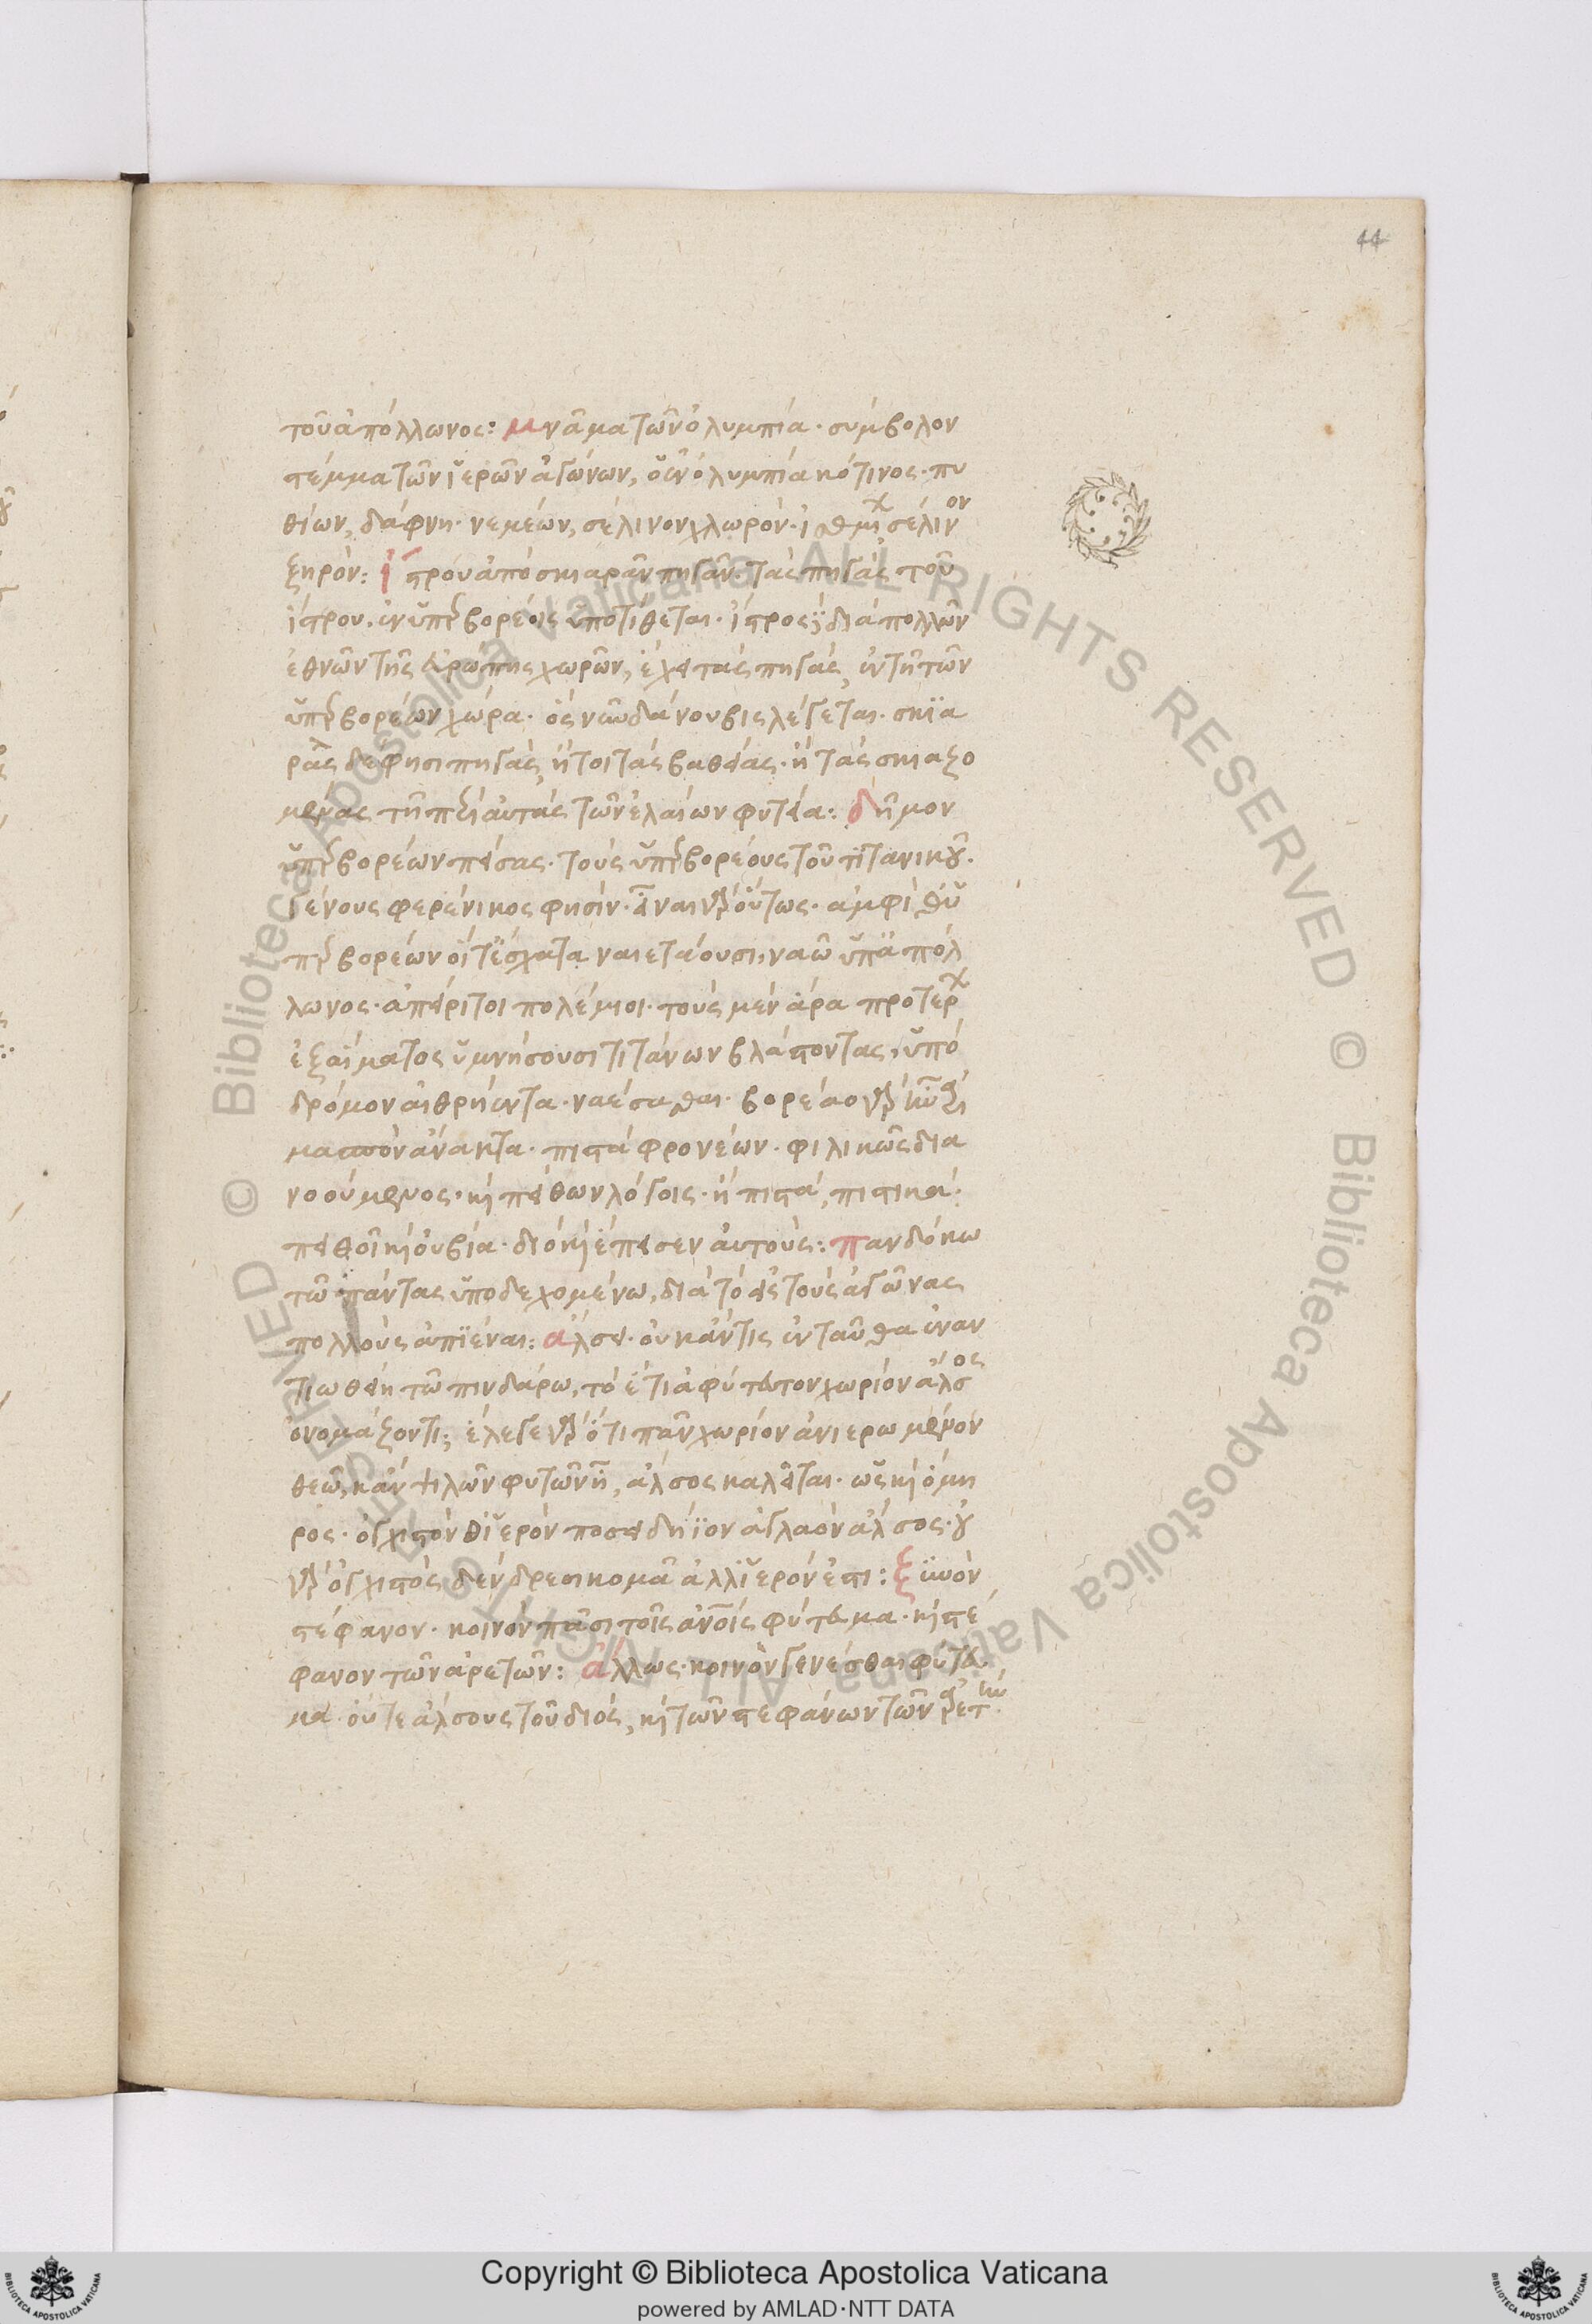 44
τοῦ ἀπόλλωνος: μνᾶμα τῶν ὀλυμπία· σύμβολον
στέμμα τῶν ἱερῶν ἀγώνων, ὅ ἐν ὀλυμπία κότινος· πυ
θίων, δάφνη· νεμέων, σέλινον χλωρόν· ἰσθμί σέλινον
ξηρόν: ἴστρου ἀπὸ σκιαρᾶν παγᾶν· τὰς πηγὰς τοῦ
ἴστρου· ἐν ὑπερβορέοις ὑποτίθεται· ἴστρος διὰ πολλῶν
ἐθνῶν τῆς εὐρώπης χωρῶν, ἔχει τὰς πηγὰς, ἐν τῆ τῶν
ὑπερβορέων χώρα· ὃς νῦν δάνουβις λέγεται· σκϊα
ρὰς δέ φησι πηγὰς, ἤτοι τὰς βαθείας· ἢ τὰς σκιαζο
μένας τῆ περὶ αὐτὰς τῶν ἐλαίων φυτεία: δῆμον
ὑπερβορέων πείσας· τοὺς ὑπερβορέους τοῦ τιτανικοῦ
γένους φερένικος φησίν· εἶναι γὰρ οὕτως· ἀμφί θ' ὑ
περβορέων οἵ τ' ἔσχατα ναιετάουσι, ναῶ ὑπ' ἀπόλ
λωνος· ἀπείριτοι πολέμιοι· τοὺς μὲν ἄρα προτερ
ἐξ αἵματος ὑμνήσουσι τιτάνων βλαστόντας, ὑπὸ
δρόμον αἰθρήεντα· νάεσσθαι· βορέαο
μασπὸν ἄνακτα· πιστὰ φρονέων· φιλικῶς δια
νοούμενος· καὶ πείθων λόγοις· ἢ πιστὰ, πιστικά·
πειθοῖ καὶ οὐ βία· διὸ καὶ ἔπεισεν αὐτούς: πανδόκω
τῶ πάντας ὑποδεχομένω, διὰ τὸ εἰς τοὺς ἀγῶνας
πολλοὺς ἀπϊέναι: ἄλσει· οὐκ ἄν τις ἐνταῦθα ἐναν
τιωθείη τῶ πινδάρω, τὸ ἔτι ἀφύτευτον χωρίον ἄλσος
ὀνομάζοντι; ἔλεγε γὰρ ὅτι πᾶν χωρίον ἀνιερωμένον
θεῶ, κἂν ψιλὸν φυτῶν ἦ, ἄλσος καλεῖται· ὡς καὶ ὅμη
ρος· ὀγχηστόν θ' ἱερὸν ποσειδήϊον ἀγλαὸν ἄλσος· οὐ
γὰρ ὀγχηστὸς δένδρεσι κομᾶ ἀλλ' ἱερόν ἐστι: ξυνόν
στέφανον· κοινὸν πᾶσι τοῖς ἀνοις φύτευμα· καὶ στέ
φανον τῶν ἀρετῶν: ἄλλως· κοινὸν γενέσθαι φύτευ
μα· οὔτε ἄλσους τοῦ διός, καὶ τῶν στεφάνων τῶν ἀρετῶν
Copyright © Biblioteca Apostolica Vaticana
powered by AMLAD·NTT DATA